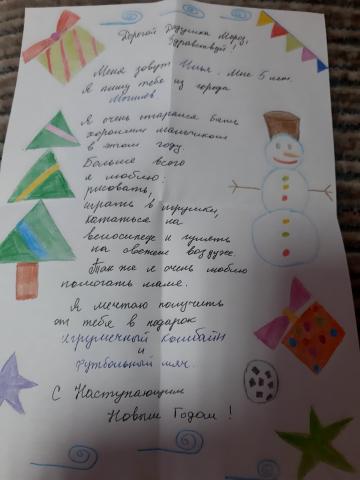 Дорогой Дедушка Мороз,
Здравствуй!
Меня зовут Илья. Мне 5 лет.
Я пишу тебе из города
Могилев
Я очень старался быть
хорошим мальчиком
в этом году.
Больше всего
я люблю:
рисовать,
играть в игрушки,
кататься на
велосипеде и гулять
на свежем воздухе.
Так же я очень люблю
помогать маме.
Я мечтаю получить
от тебя в подарок
игрушечный комбайн
и
футбольный мяч.
С Наступающим
Новым Годом!